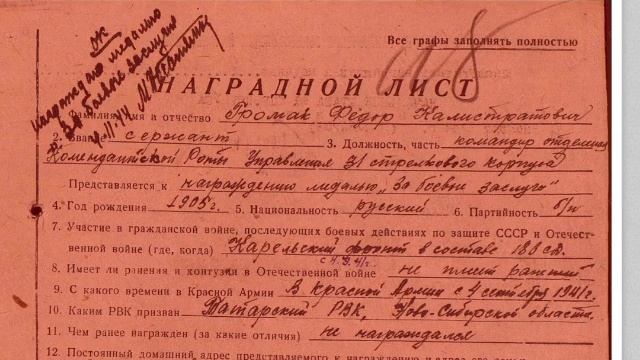 ОК
Награжден медалью
"За боевые заслуги"
4.11.44
Все графы заполнять полностью
№ 8
НАГРАДНОЙ ЛИСТ
1. Фамилия, имя и отчество Громак Федор Калистратович
2. Звание сержант 3. Должность, часть командир отделения
Комендантской Роты Управления 31 стрелкового корпуса
Представляется к награждению медалью „За боевые заслуги"
4. Год рождения 1905 г. 5. Национальность русский 6. Партийность б/п
7. Участие в гражданской войне, последующих боевых действиях по защите СССР и Отечест-
венной войне (где, когда) Карельский фронт в составе 188 сд.
8. Имеет ли ранения и контузии в Отечественной войне не имеет ранений
9. С какого времени в Красной Армии В Красной Армии с 4 сентября 1941 г.
10. Каким РВК призван Татарский РВК, Ново-Сибирской области.
11. Чем ранее награжден (за какие отличия) не награждался
12. Постоянный домашний адрес представляемого к награждению и адрес его семьи